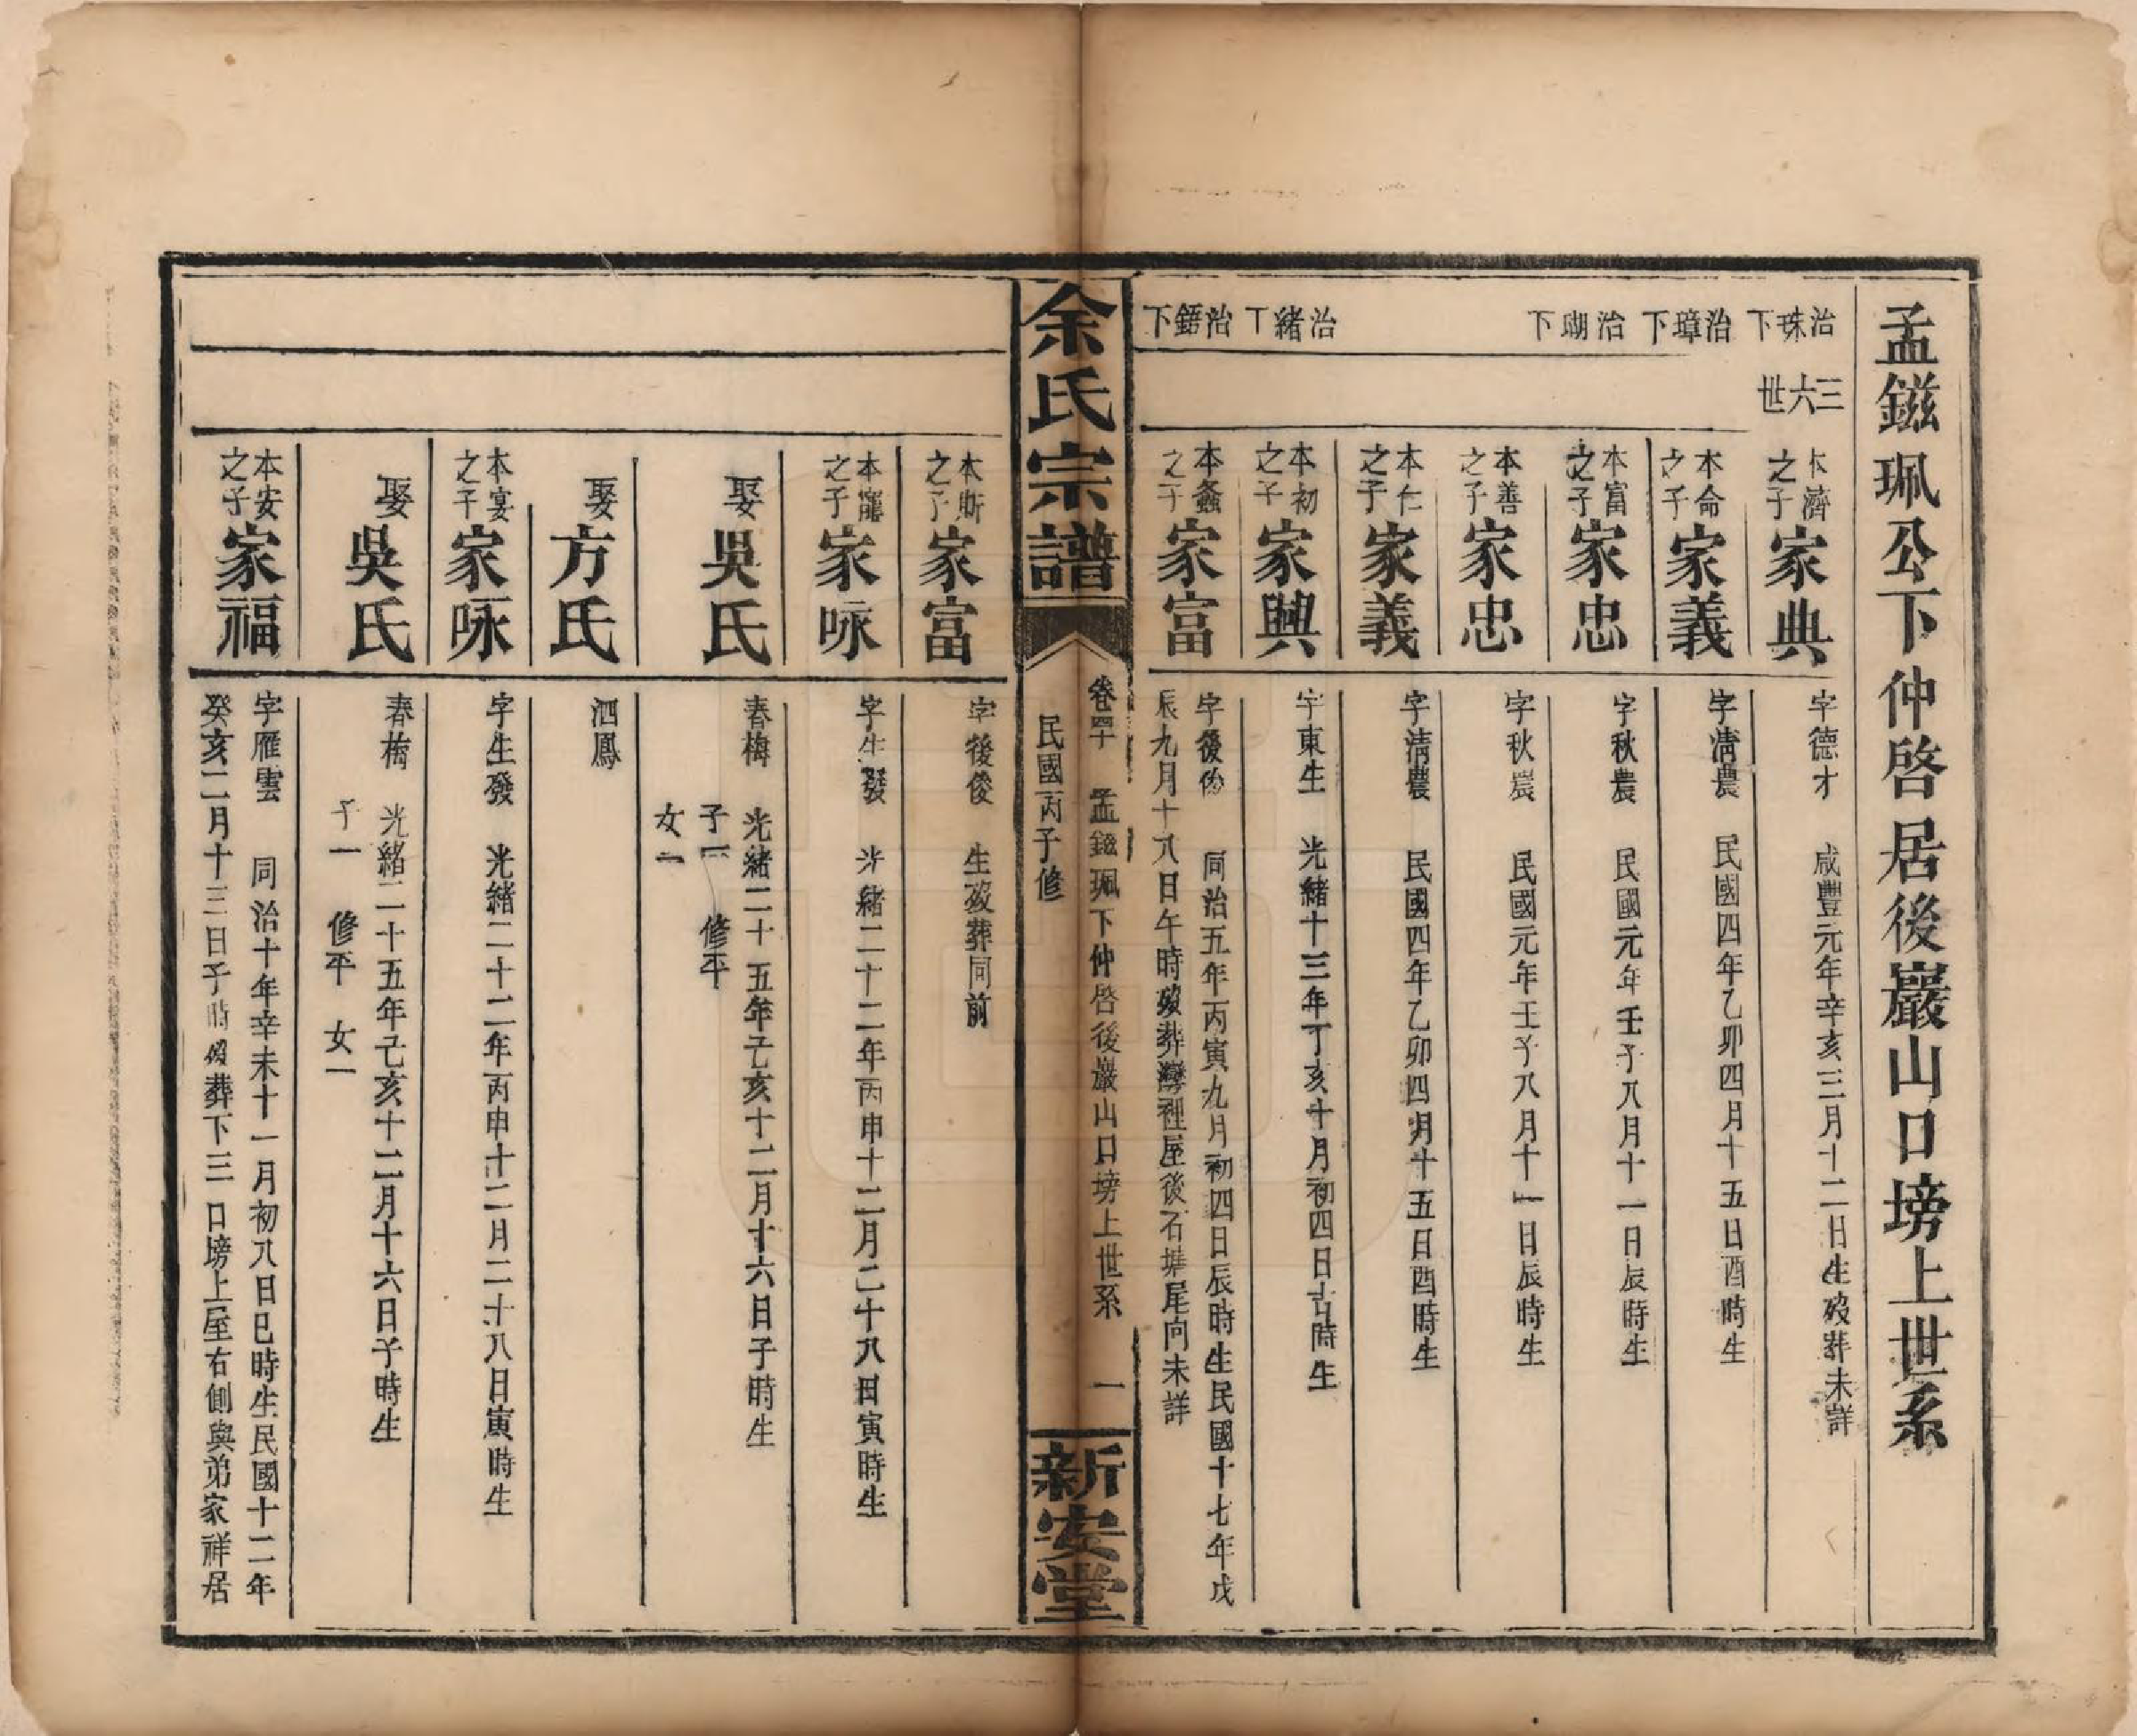 孟鎡珮公下仲啓居後巖山口塝上世系
治珠下
三六世
本濟之子家典
字德才 咸豐元年辛亥三月十二日生歿葬未詳
治璋下
本命之子家義
字清農 民國四年乙卯四月十五日酉時生
治瑚下
本富之子家忠
字秋農 民國元年壬子八月十一日辰時生
本善之子家忠
字秋農 民國元年壬子八月十一日辰時生
本仁之子家義
字清農 民國四年乙卯四月十五日酉時生
治緒下
本初之子家興
字東生 光緒十三年丁亥十月初四日時生
治鋙下
本螽之子家富
字後俊 同治五年丙寅九月初四日辰時生民國十七年戊
辰九月十八日午時歿葬灣裡屋後石塘尾向未詳
余氏宗譜
卷四十 孟鎡珮下仲啓後巖山口塝上世系 一
民國丙子修
新安堂
本斯之子家富
字後俊 生歿葬同前
本寵之子家咏
字生發 光緒二十二年丙申十二月二十八日寅時生
娶吳氏
春梅 光緒二十五年己亥十二月十六日子時生
子一 修平
女一
娶方氏
泗鳳
本宴之子家咏
字生發 光緒二十二年丙申十二月二十八日寅時生
娶吳氏
春梅 光緒二十五年己亥十二月十六日子時生
子一 修平 女一
本安之子家福
字雁雲 同治十年辛未十一月初八日巳時生民國十二年
癸亥二月十三日子時歿葬下三口塝上屋右側與弟家祥居